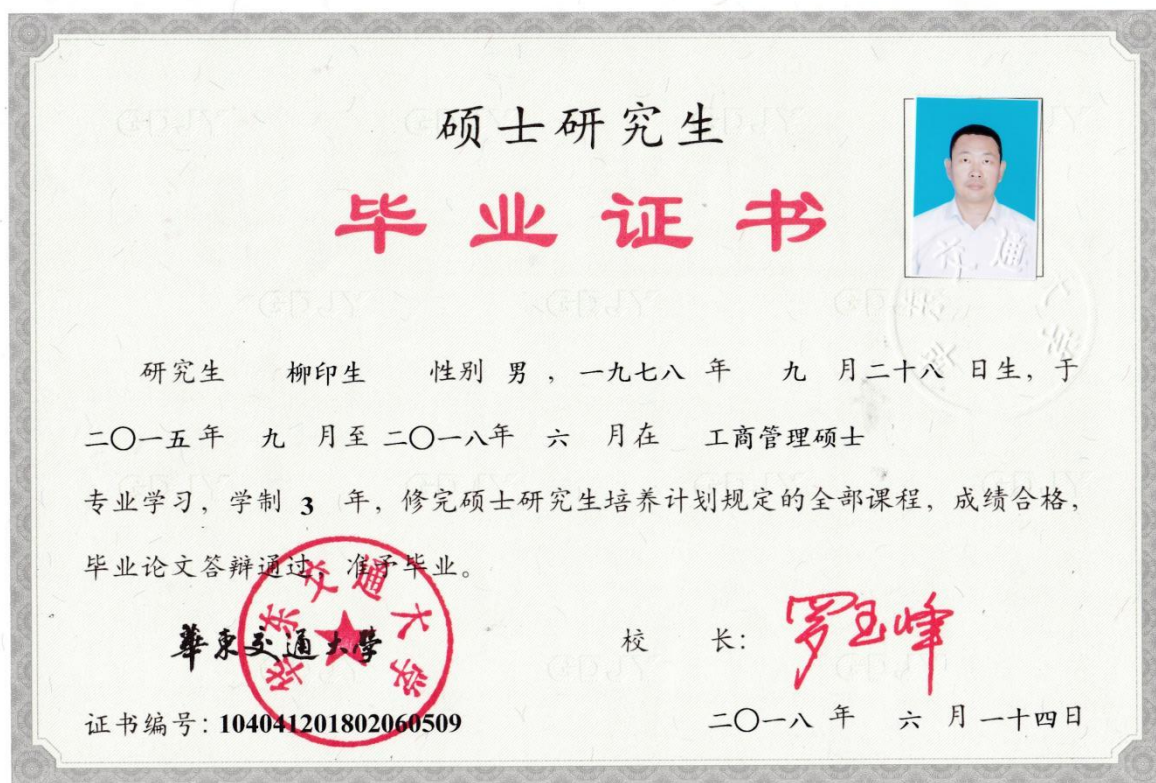 硕士研究生
毕业证书
研究生 柳印生 性别 男 ,一九七八 年 九 月二十八 日生,于
二〇一五年 九 月至 二〇一八年 六 月在 工商管理硕士
专业学习,学制 3 年,修完硕士研究生培养计划规定的全部课程,成绩合格,
毕业论文答辩通过,准予毕业。
華東交通大學
华东交通大学
校 长:
罗玉峰
证书编号:104041201802060509
二〇一八 年 六 月 一十四日